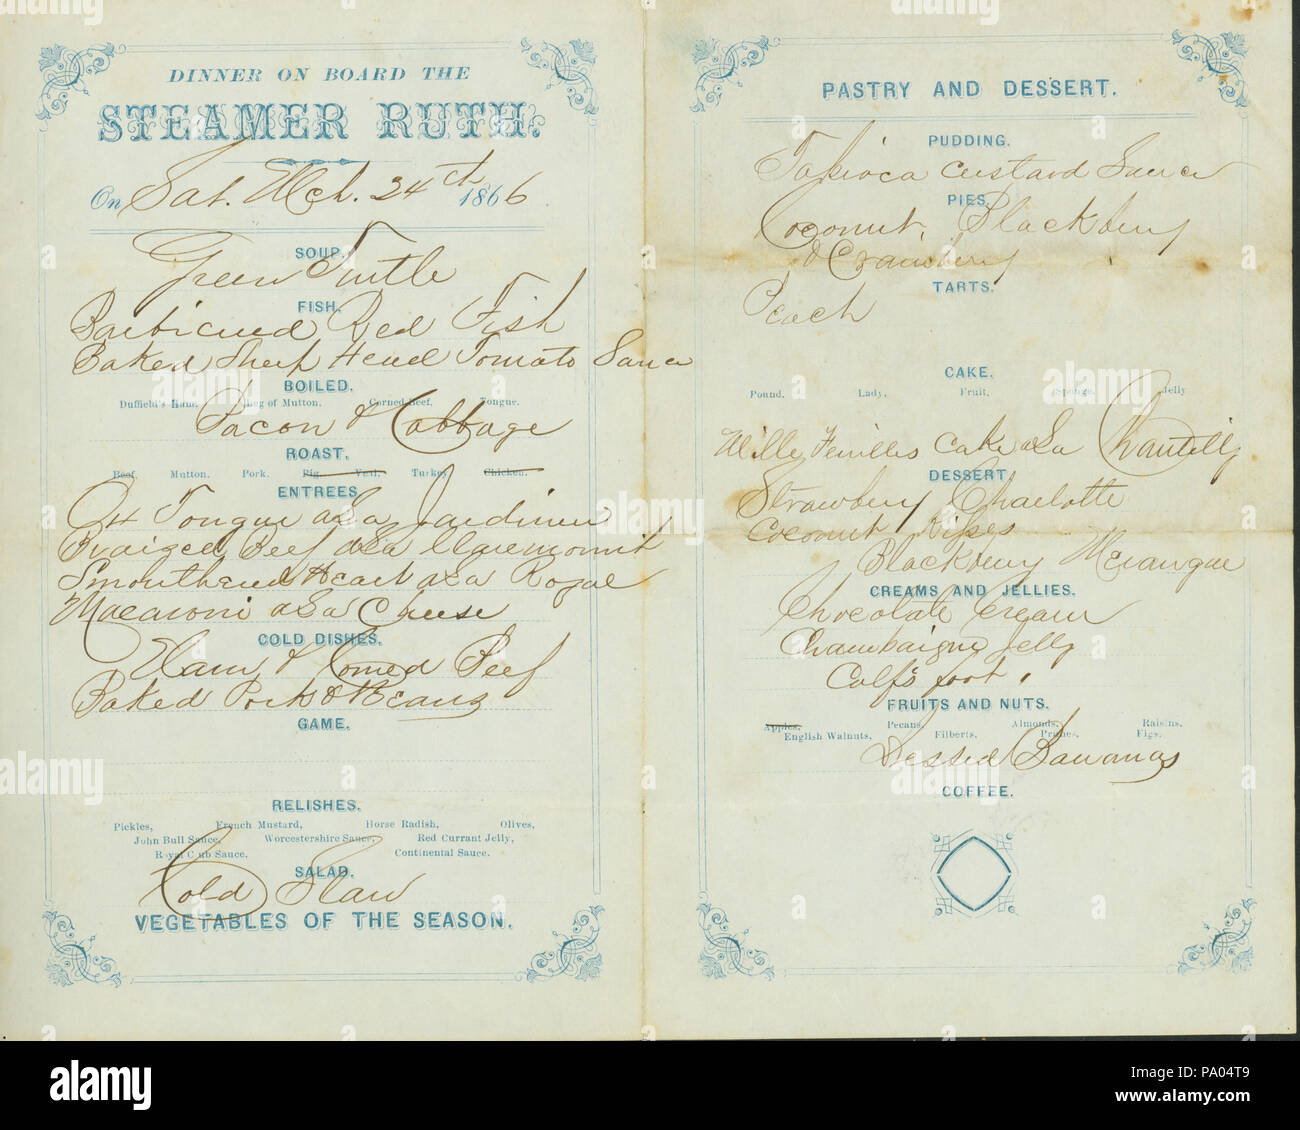 DINNER ON BOARD THE
STEAMER RUTH.
On Sat. Mch. 24th 1866
SOUP.
Green Turtle
FISH.
Barbicued Red Fish
Baked Sheep Head Tomato Sauce
BOILED.
Duffield's Ham, Leg of Mutton, Corned Beef, Tongue.
Bacon & Cabbage
ROAST.
Beef, Mutton. Pork. Pig. Veal, Turkey Chicken.
ENTREES
Ox Tongue a La Jardinier
Braized Beef a La Claremount
Smouthered Heart a La Royal
Macaroni a La Cheese
COLD DISHES.
Ham & Corned Beef
Baked Pork & Beans
GAME.
RELISHES.
Pickles, French Mustard, Horse Radish, Olives,
John Bull Sauce, Worcestershire Sauce, Red Currant Jelly,
Royal Club Sauce, Continental Sauce.
SALAD.
Cold Slaw
VEGETABLES OF THE SEASON.
PASTRY AND DESSERT.
PUDDING.
Tapioca Custard Sauce
PIES.
Coconut, Blackbery
& Cranbery
TARTS.
Peach
CAKE.
Pound. Lady, Fruit, Sponge, Jelly
Mille Feuilles Cake a La Chantilly
DESSERT
Strawbery Charlotte
Coconut Kisses
Blackbery Merangue
CREAMS AND JELLIES.
Chocolate Cream
Champaigne Jelly
Calf's foot.
FRUITS AND NUTS.
Apples, Pecans, Almonds, Raisins.
English Walnuts, Filberts, Prunes, Figs.
Dessed Bananas
COFFEE.
alamy
Image ID: PA04T9
www.alamy.com